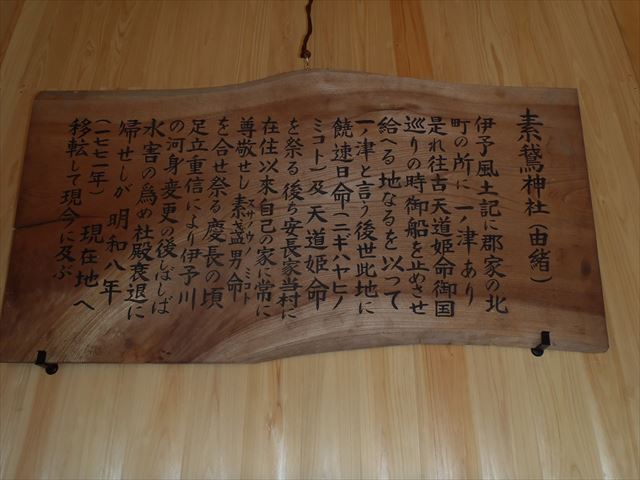 素鵞神社(由緒)
伊予風土記に郡家の北
町の所に一ノ津あり
是れ往古天道姫命御国
巡りの時御船を止めさせ
給へる地なるを以つて
一ノ津と言う後世此地に
饒速日命(ニギハヤヒノ
ミコト)及天道姫命
を祭る後ち安長家当村に
在住以來自己の家に常に
尊敬せし素盞男命
スサノウノミコト
を合せ祭る慶長の頃
足立重信により伊予川
の河身変更の後しばしば
水害の為め社殿衰退に
帰せしが明和八年
(一七七一年)現在地へ
移転して現今に及ぶ